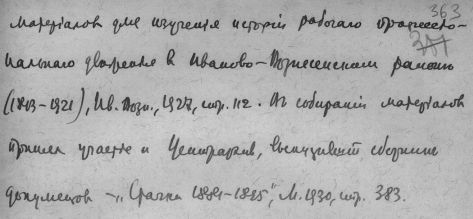 363
377
матерiалов для изученiя исторiи рабочаго професс‍iо-
нальнаго движенiя в Иваново-Вознесенском районѣ
(1813-1921), Ив. Возн., 1927, стр. 112. Въ собиранiи матерiалов
принял участiе и Центрархив, выпустившiй сборник
документов - „Стачки 1881-1895", М. 1930, стр. 383.